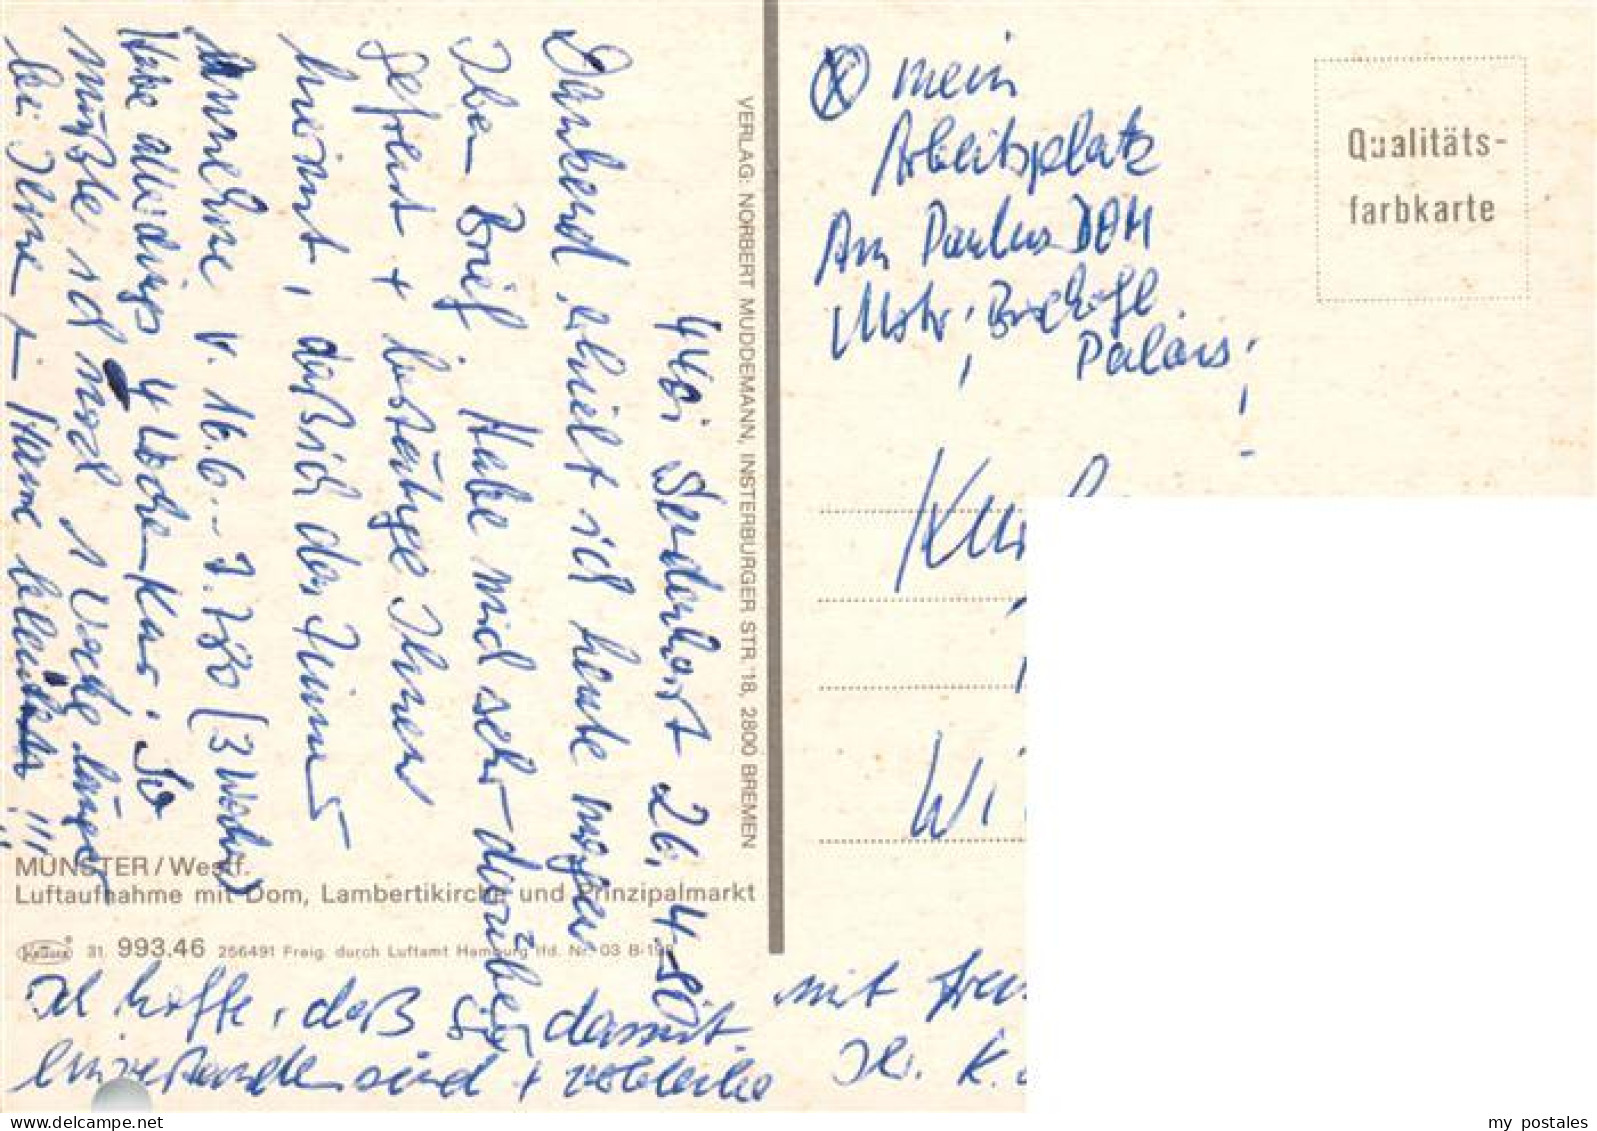 4401 Sendenhorst 26. 4. 80
Dankend erhielt ich heute morgen
Ihren Brief. Habe mich sehr darüber
gefreut + bestätige Ihnen
hiermit, daß ich das Zimmer
v. 16.6. – 7.7.80 (3 Wochen)
Habe allerdings 4 Wochen Kur. So
müßte ich noch 1 Woche länger
bei Ihnen im Hause bleiben!!!
Ich hoffe, daß Sie damit
einverstanden sind + verbleibe
mit freu
Ihr. K.
mein
Arbeitsplatz
Am Paulus DOM
Mstr, Bischöfl.
Palais!
Kur
Wi
Qualitäts-
farbkarte
VERLAG: NORBERT MUDDEMANN, INSTERBURGER STR. 18, 2800 BREMEN
MÜNSTER / Westf.
Luftaufnahme mit Dom, Lambertikirche und Prinzipalmarkt
Krüger 31 993.46 256491 Freig. durch Luftamt Hamburg lfd. Nr. 03 B-199
my postales